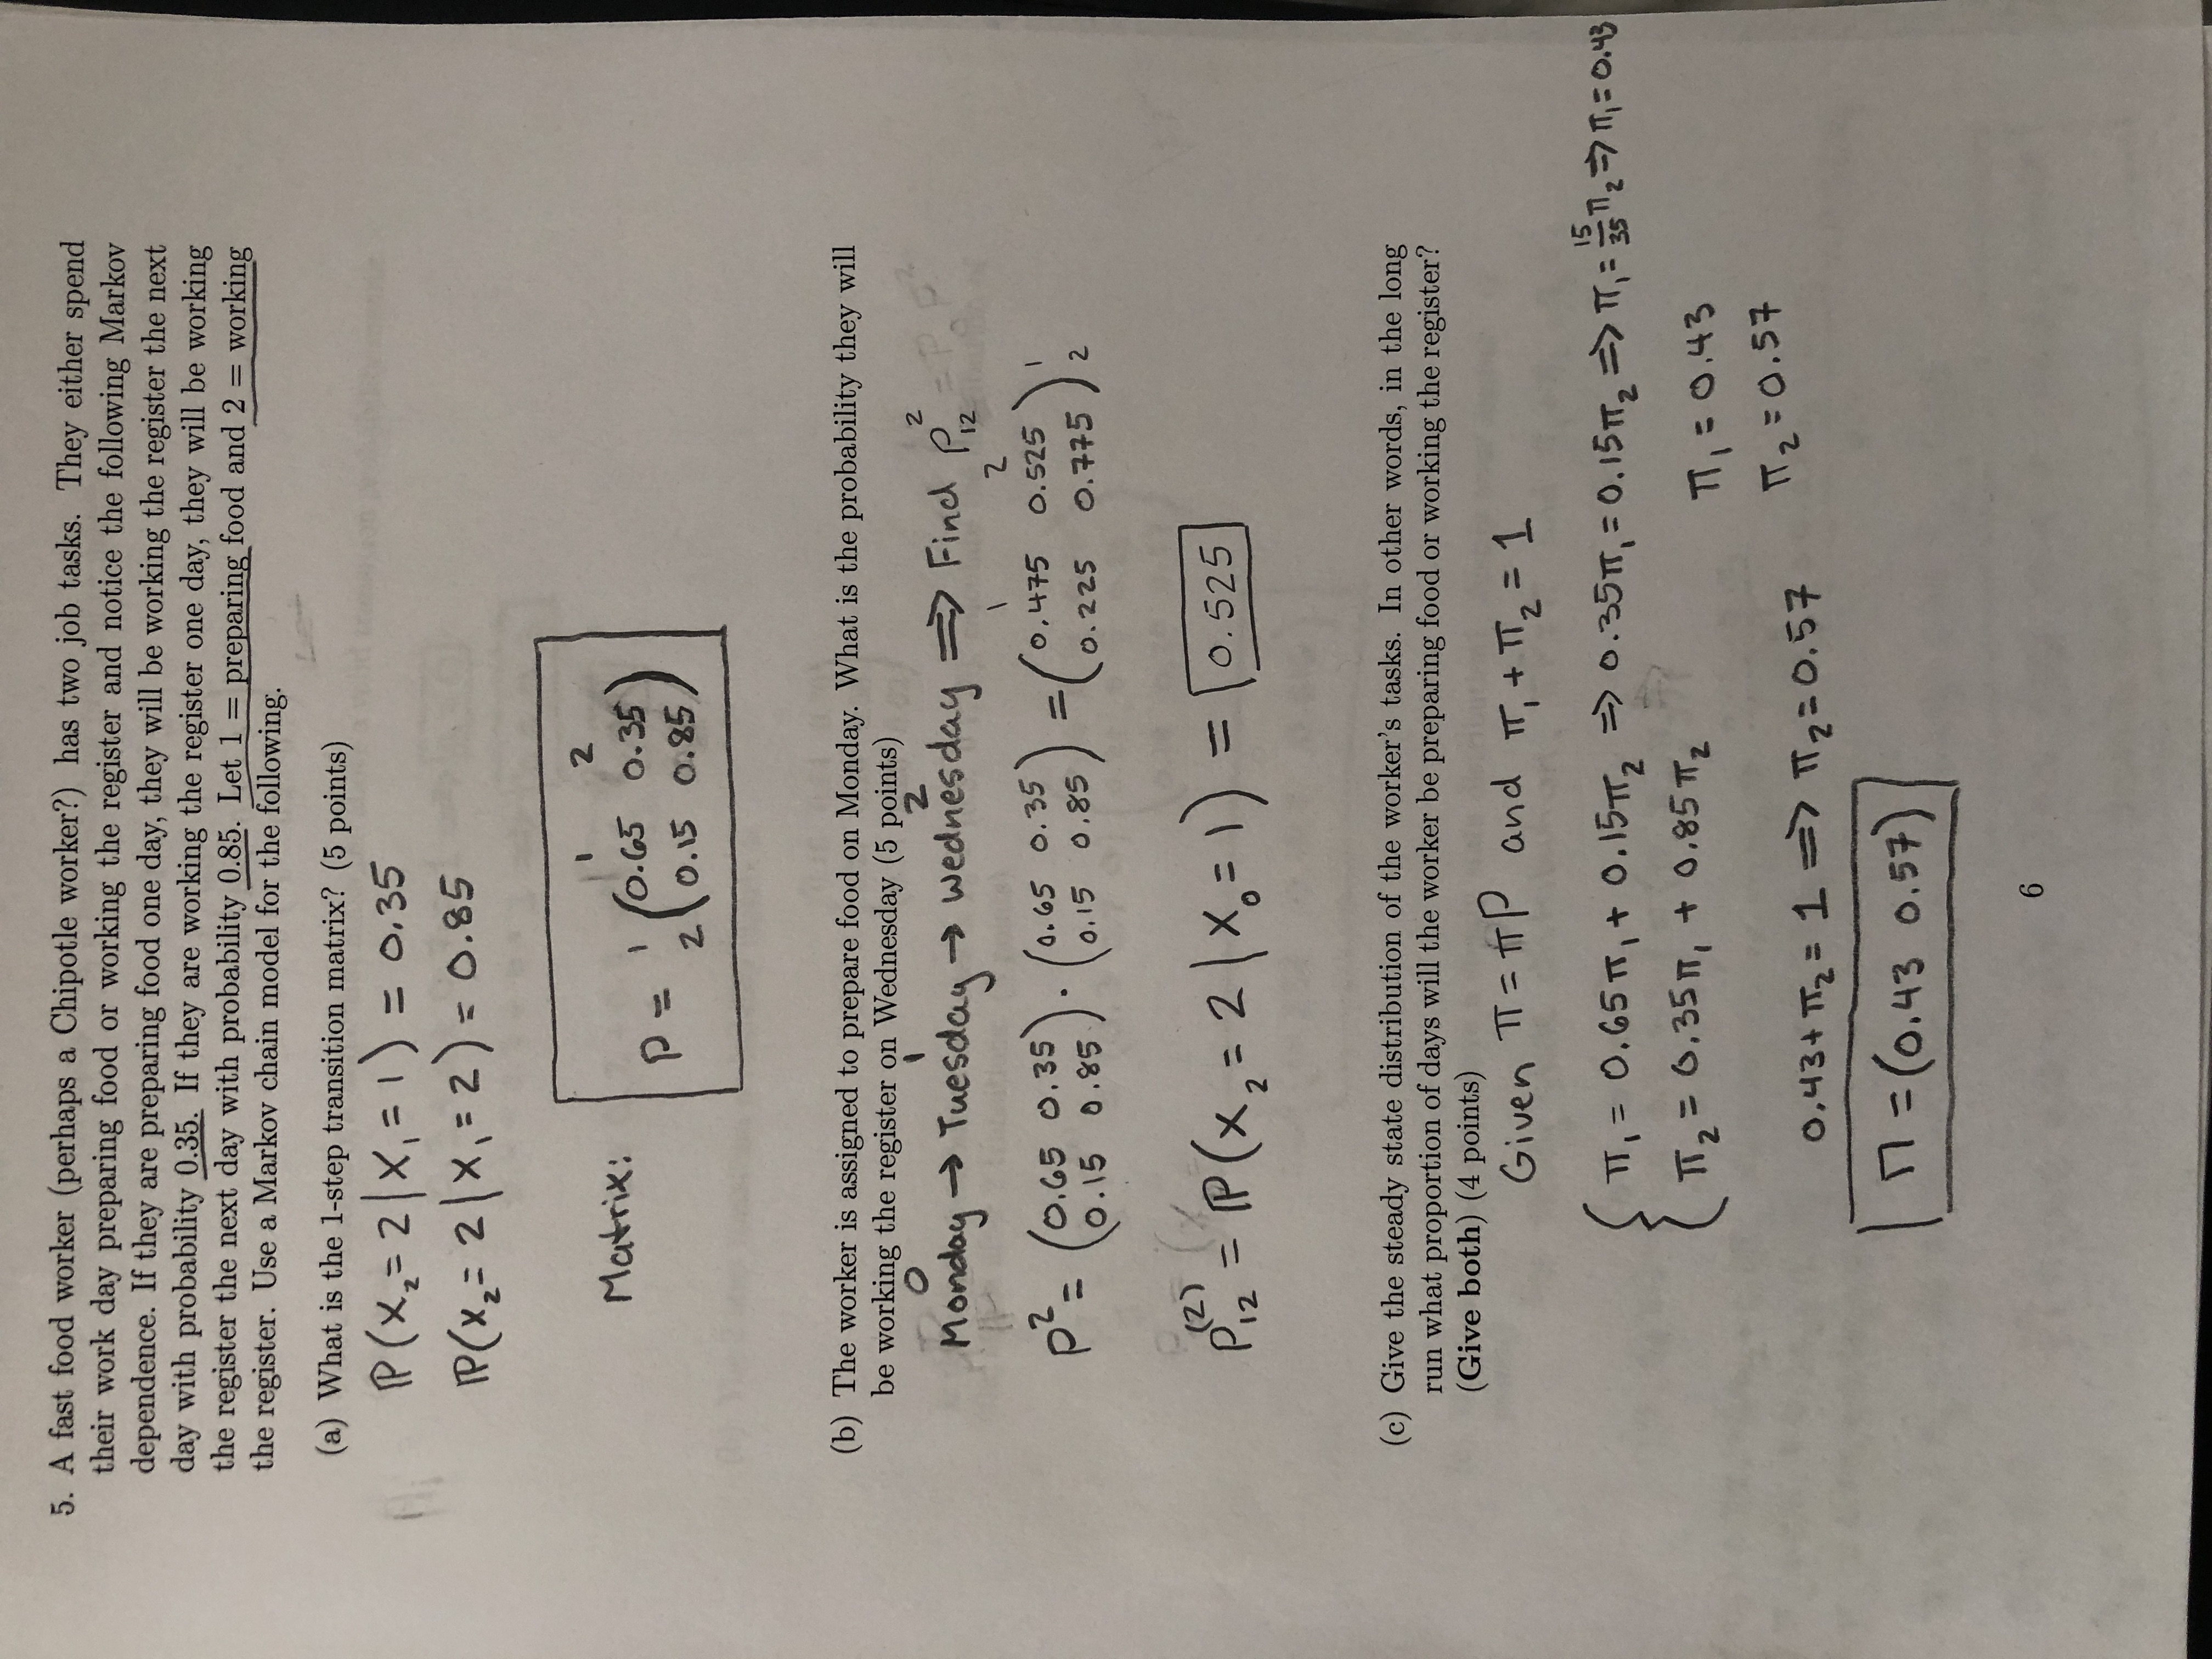 5. A fast food worker (perhaps a Chipotle worker?) has two job tasks. They either spend
their work day preparing food or working the register and notice the following Markov
dependence. If they are preparing food one day, they will be working the register the next
day with probability 0.35. If they are working the register one day, they will be working
the register the next day with probability 0.85. Let 1 = preparing food and 2 = working
the register. Use a Markov chain model for the following.
(a) What is the 1-step transition matrix? (5 points)
ℙ(X₂=2|X₁=1) = 0.35
ℙ(X₂=2|X₁=2) = 0.85
1 2
Matrix: P = 1 (0.65 0.35)
2 (0.15 0.85)
(b) The worker is assigned to prepare food on Monday. What is the probability they will
be working the register on Wednesday (5 points)
0 1 2
Monday → Tuesday → Wednesday ⇒ Find P²₁₂
1 2
P² = (0.65 0.35) · (0.65 0.35) = (0.475 0.525) 1
(0.15 0.85) (0.15 0.85) (0.225 0.775) 2
P₁₂⁽²⁾ = ℙ(X₂=2|X₀=1) = 0.525
(c) Give the steady state distribution of the worker's tasks. In other words, in the long
run what proportion of days will the worker be preparing food or working the register?
(Give both) (4 points)
Given π=πP and π₁+π₂=1
{ π₁ = 0.65π₁ + 0.15π₂ ⇒ 0.35π₁ = 0.15π₂ ⇒ π₁ = 15/35 π₂ ⇒ π₁ = 0.43
π₂ = 0.35π₁ + 0.85π₂
π₁ = 0.43
π₂ = 0.57
0.43+π₂ = 1 ⇒ π₂=0.57
Π = (0.43 0.57)
6